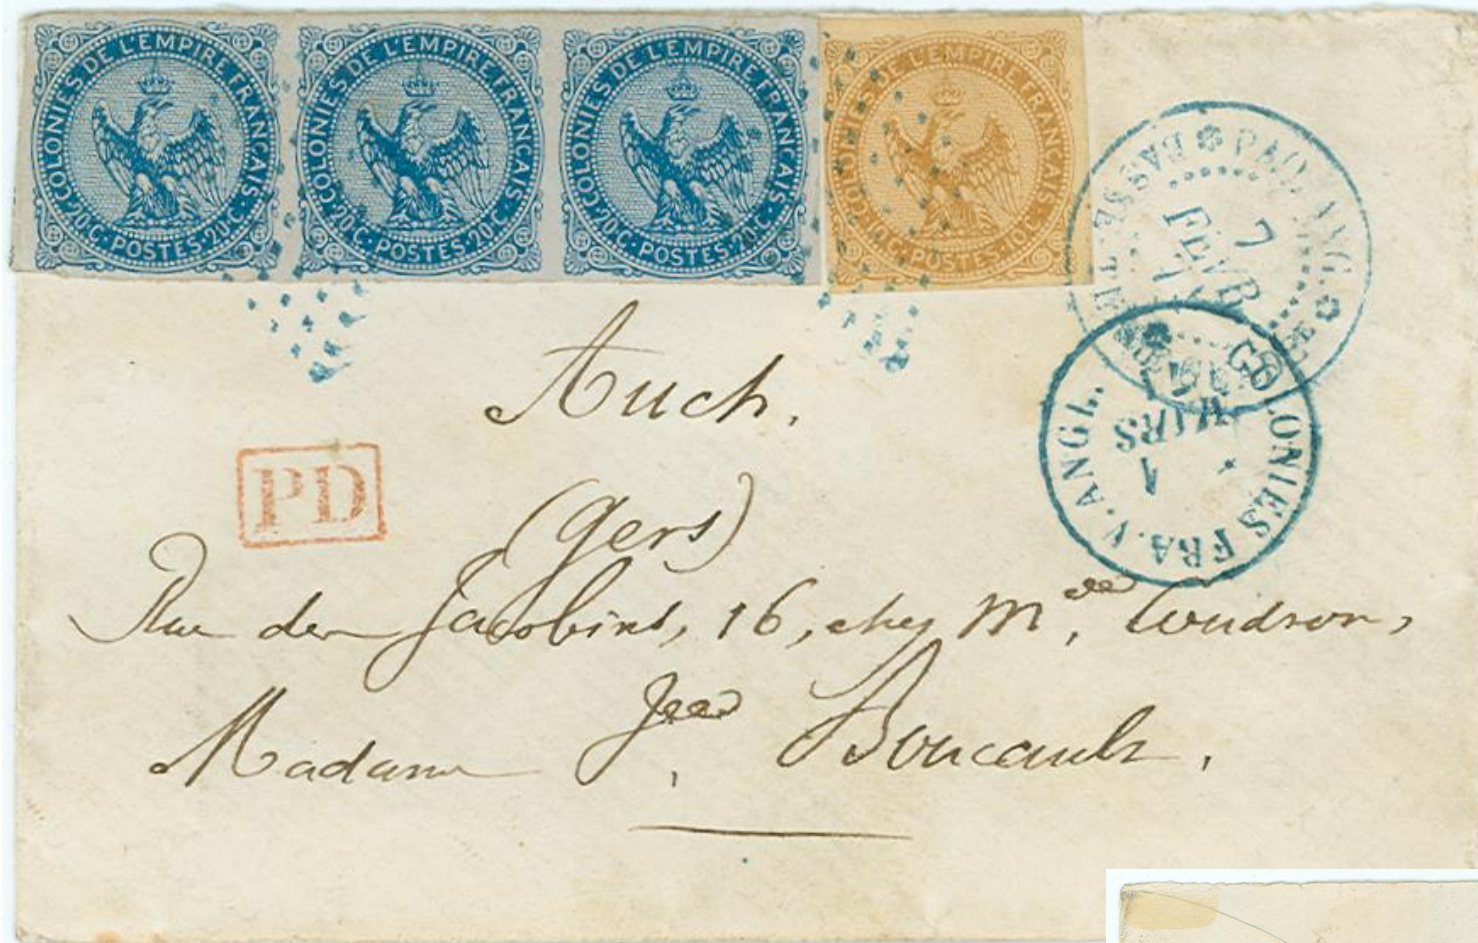 COLONIES DE L'EMPIRE FRANÇAIS
20C · POSTES · 20C
COLONIES DE L'EMPIRE FRANÇAIS
20C · POSTES · 20C
COLONIES DE L'EMPIRE FRANÇAIS
20C · POSTES · 20C
COLONIES DE L'EMPIRE FRANÇAIS
10C · POSTES · 10C
PAQ. ANG.
BASSE-TERRE
7
FEVR
COLONIES FRA. V. ANGL.
1
MARS
Auch.
PD
(Gers)
Rue des Jacobins, 16, chez
Madame Boucault.